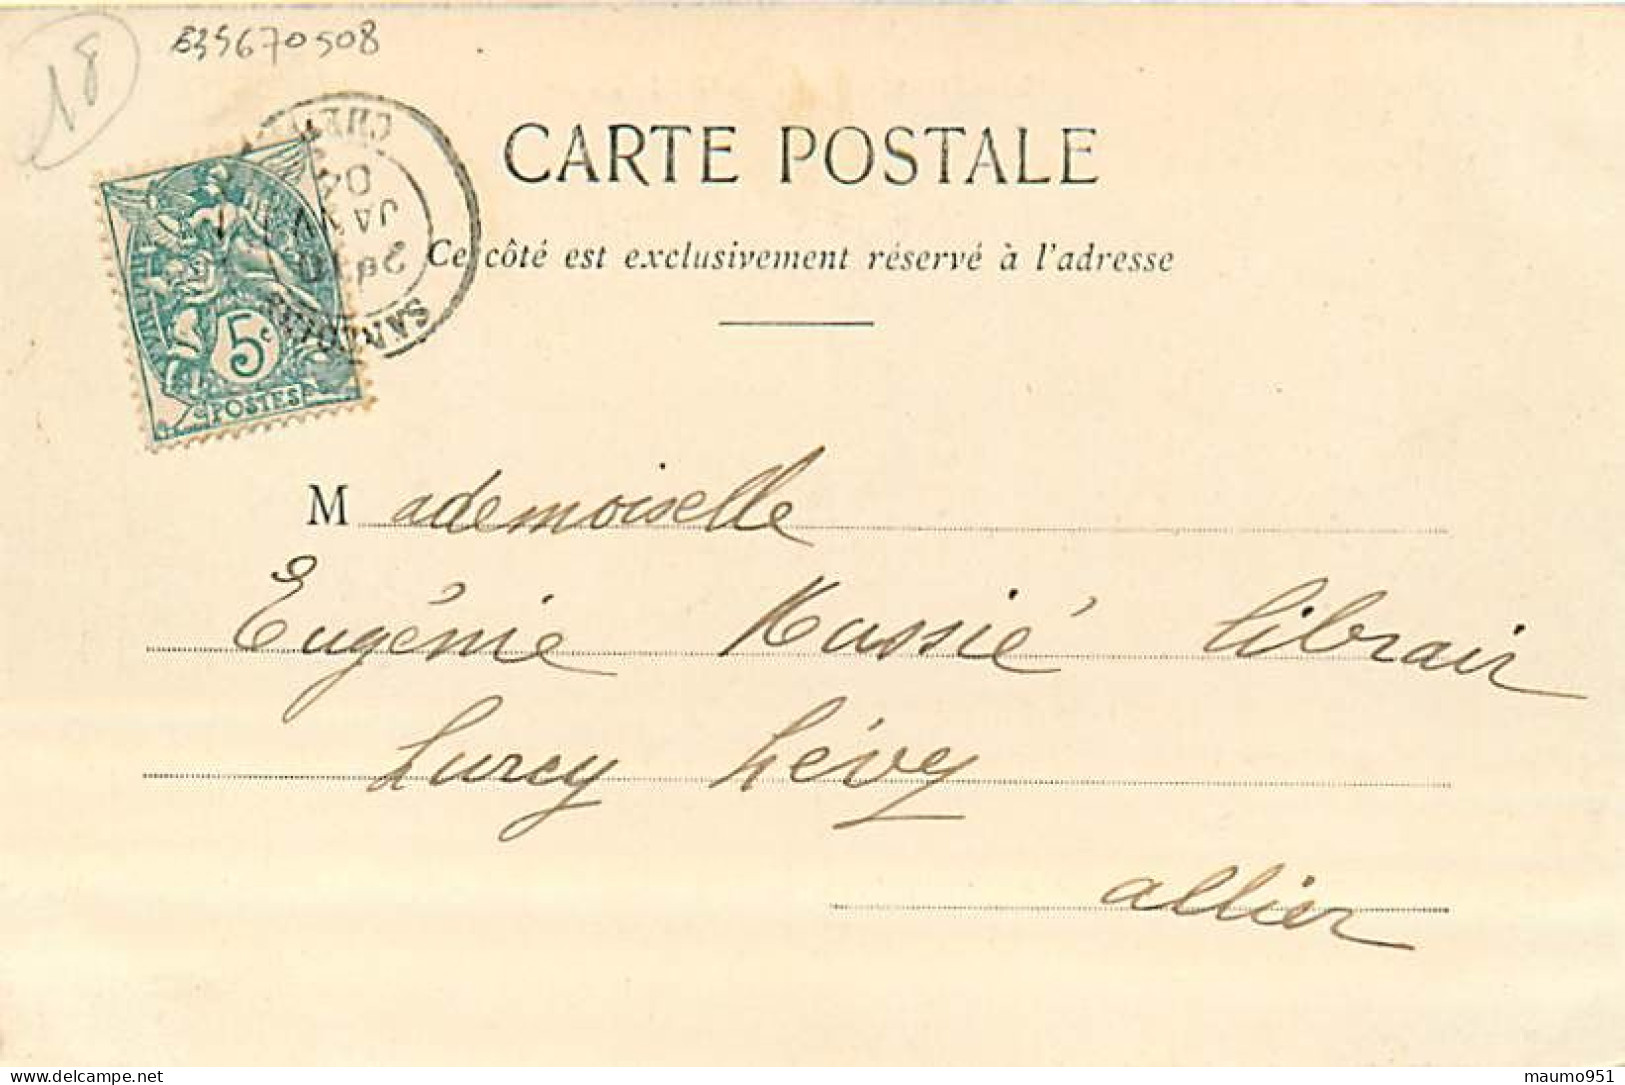 18
E35670508
CARTE POSTALE
Ce côté est exclusivement réservé à l'adresse
CHER
04
JANV
5c
POSTES
Mademoiselle
Eugénie Massié librair
Lurcy Lévy
allier
Delcampe.net
maumo951